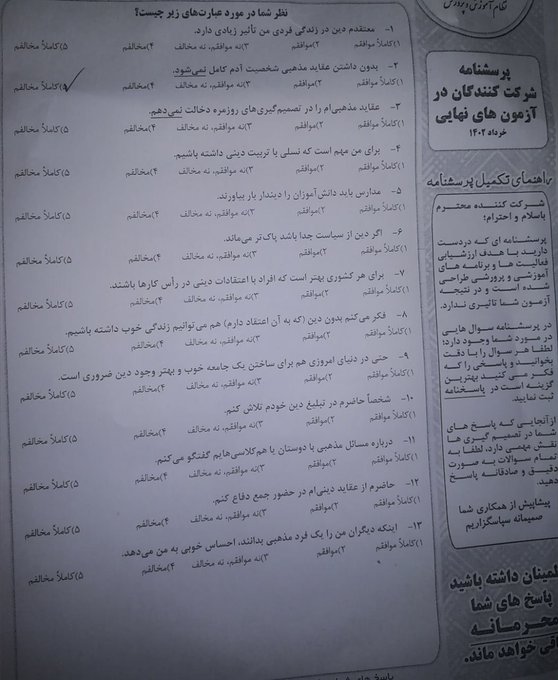 نظام آموزش و پرورش
پرسشنامه
شرکت کنندگان در
آزمون های نهایی
خرداد ۱۴۰۲
راهنمای تکمیل پرسشنامه
شرکت کننده محترم
باسلام و احترام؛
پرسشنامه ای که دردست
دارید با هدف ارزشیابی
فعالیت ها و برنامه های
آموزشی و پرورشی طراحی
شده است و در نتیجه
آزمون شما تاثیری ندارد.
در پرسشنامه سوال هایی
در مورد شما وجود دارد؛
لطفا هر سوال را با دقت
بخوانید و پاسخی را که
فکر می کنید بهترین
گزینه است در پاسخنامه
ثبت نمایید.
ازآنجایی که پاسخ های
شما در تصمیم گیری ها
نقش مهمی دارد، لطفا به
تمام سوالات به صورت
دقیق و صادقانه پاسخ
دهید.
پیشاپیش از همکاری شما
صمیمانه سپاسگزاریم
اطمینان داشته باشید
پاسخ های شما
محرمانه
باقی خواهد ماند.
نظر شما در مورد عبارت‌های زیر چیست؟
۱- معتقدم دین در زندگی فردی من تأثیر زیادی دارد.
۱)کاملاً موافقم ۲)موافقم ۳)نه موافقم، نه مخالف ۴)مخالفم ۵)کاملاً مخالفم
۲- بدون داشتن عقاید مذهبی شخصیت آدم کامل نمی‌شود.
۱)کاملاً موافقم ۲)موافقم ۳)نه موافقم، نه مخالف ۴)مخالفم ۵)کاملاً مخالفم
۳- عقاید مذهبی‌ام را در تصمیم‌گیری‌های روزمره دخالت نمی‌دهم.
۱)کاملاً موافقم ۲)موافقم ۳)نه موافقم، نه مخالف ۴)مخالفم ۵)کاملاً مخالفم
۴- برای من مهم است که نسلی با تربیت دینی داشته باشیم.
۱)کاملاً موافقم ۲)موافقم ۳)نه موافقم، نه مخالف ۴)مخالفم ۵)کاملاً مخالفم
۵- مدارس باید دانش‌آموزان را دیندار بار بیاورند.
۱)کاملاً موافقم ۲)موافقم ۳)نه موافقم، نه مخالف ۴)مخالفم ۵)کاملاً مخالفم
۶- اگر دین از سیاست جدا باشد پاک‌تر می‌ماند.
۱)کاملاً موافقم ۲)موافقم ۳)نه موافقم، نه مخالف ۴)مخالفم ۵)کاملاً مخالفم
۷- برای هر کشوری بهتر است که افراد با اعتقادات دینی در رأس کارها باشند.
۱)کاملاً موافقم ۲)موافقم ۳)نه موافقم، نه مخالف ۴)مخالفم ۵)کاملاً مخالفم
۸- فکر می‌کنم بدون دین (که به آن اعتقاد دارم) هم می‌توانیم زندگی خوب داشته باشیم.
۱)کاملاً موافقم ۲)موافقم ۳)نه موافقم، نه مخالف ۴)مخالفم ۵)کاملاً مخالفم
۹- حتی در دنیای امروزی هم برای ساختن یک جامعه خوب و بهتر وجود دین ضروری است.
۱)کاملاً موافقم ۲)موافقم ۳)نه موافقم، نه مخالف ۴)مخالفم ۵)کاملاً مخالفم
۱۰- شخصاً حاضرم در تبلیغ دین خودم تلاش کنم.
۱)کاملاً موافقم ۲)موافقم ۳)نه موافقم، نه مخالف ۴)مخالفم ۵)کاملاً مخالفم
۱۱- درباره مسائل مذهبی با دوستان یا هم‌کلاسی‌هایم گفتگو می‌کنم.
۱)کاملاً موافقم ۲)موافقم ۳)نه موافقم، نه مخالف ۴)مخالفم ۵)کاملاً مخالفم
۱۲- حاضرم از عقاید دینی‌ام در حضور جمع دفاع کنم.
۱)کاملاً موافقم ۲)موافقم ۳)نه موافقم، نه مخالف ۴)مخالفم ۵)کاملاً مخالفم
۱۳- اینکه دیگران من را یک فرد مذهبی بدانند، احساس خوبی به من می‌دهد.
۱)کاملاً موافقم ۲)موافقم ۳)نه موافقم، نه مخالف ۴)مخالفم ۵)کاملاً مخالفم